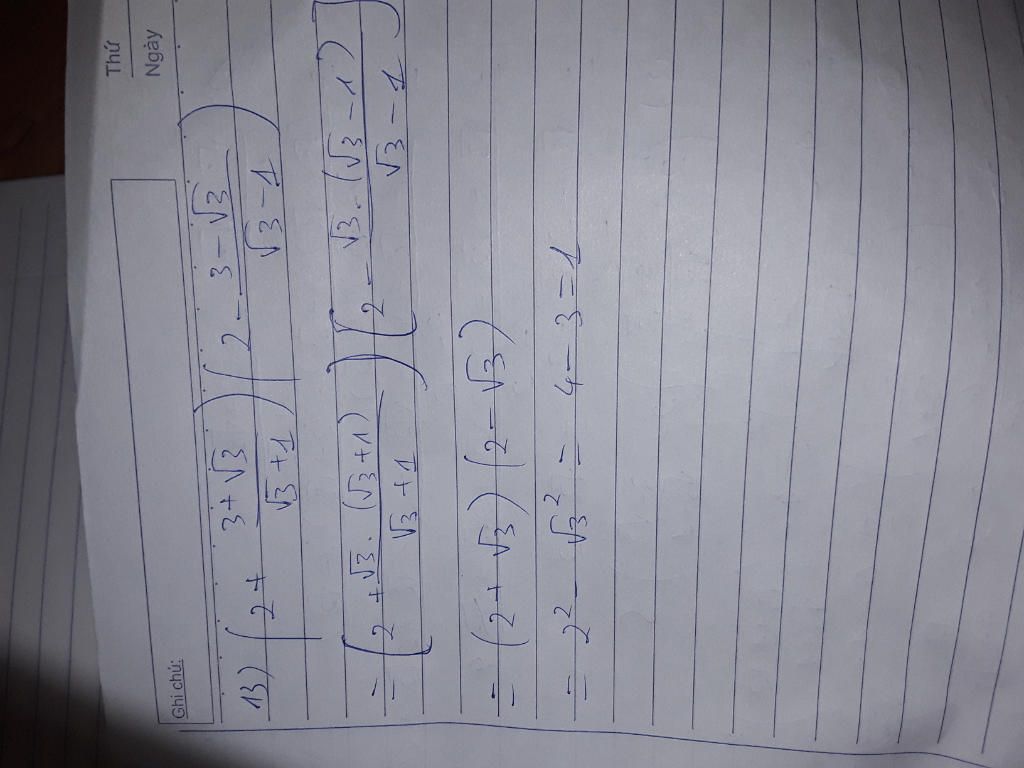 Thứ
Ngày
Ghi chú:
13) (2 + \frac{3 + √3}{√3 + 1}) (2 - \frac{3 - √3}{√3 - 1})
= (2 + \frac{√3 . (√3 + 1)}{√3 + 1}) (2 - \frac{√3 . (√3 - 1)}{√3 - 1})
= (2 + √3) (2 - √3)
= 2² - √3² = 4 - 3 = 1